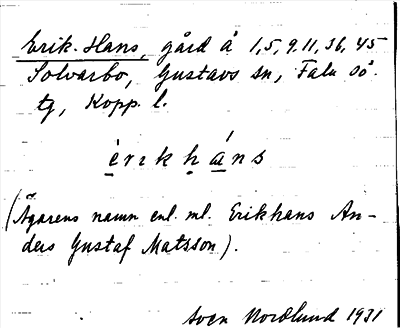 Erik-Hans, gård å 1, 5, 9, 11, 36, 45
Solvarbo, Gustavs sn, Falu sö.
tg, Kopp. l.
èrɪkháns
(Ägarens namn enl. ml. Erikhans An-
ders Gustaf Matsson).
Sven Nordlund 1931